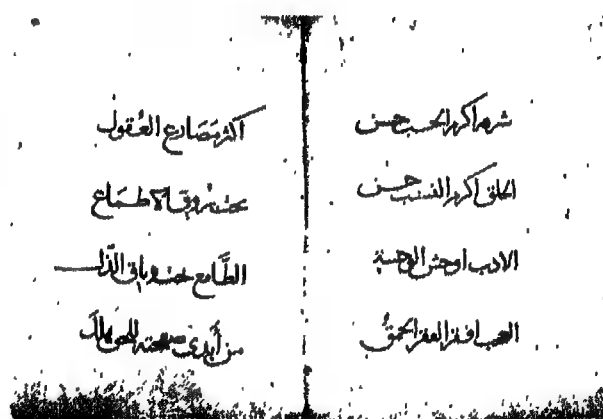 شره اكرم الحسب حسن
الخلق اكرم النسب حسن
الادب اوحش الوحشة
العجب افقر الفقر الحمقُ
اكثر مَصَارع العُقول
تحت بروق الاطماع
الطَّامع تحت وثاق الذّل
من أَبدى صفحته للحق هلكَ